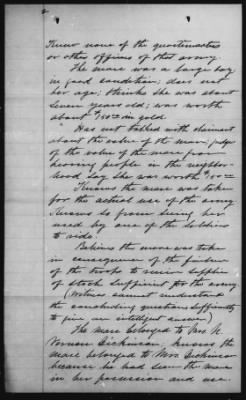 Knew none of the quartermasters
or other officers of that army.
The mare was a large bay
in good condition; does not
her age; thinks she was about
seven years old; was worth
about $150.00 in gold.
Has not talked with claimant
about the value of the mare; judges
of the value of the mare from
hearing people in the neighbor-
hood say she was worth $150.00
Knows the mare was taken
for the actual use of the army
Knows so from seeing her
used by one of the soldiers
to ride.
Believes the mare was taken
in consequence of the failure
of the troops to receive supplies
of stock sufficient for the army
(Witness cannot understand
the concluding question sufficiently
to give an intelligent answer.)
The mare belonged to Mrs. N.
Vernon Dickinson; knows the
mare belonged to Mrs Dickinson
because he had seen the mare
in her possession and use.